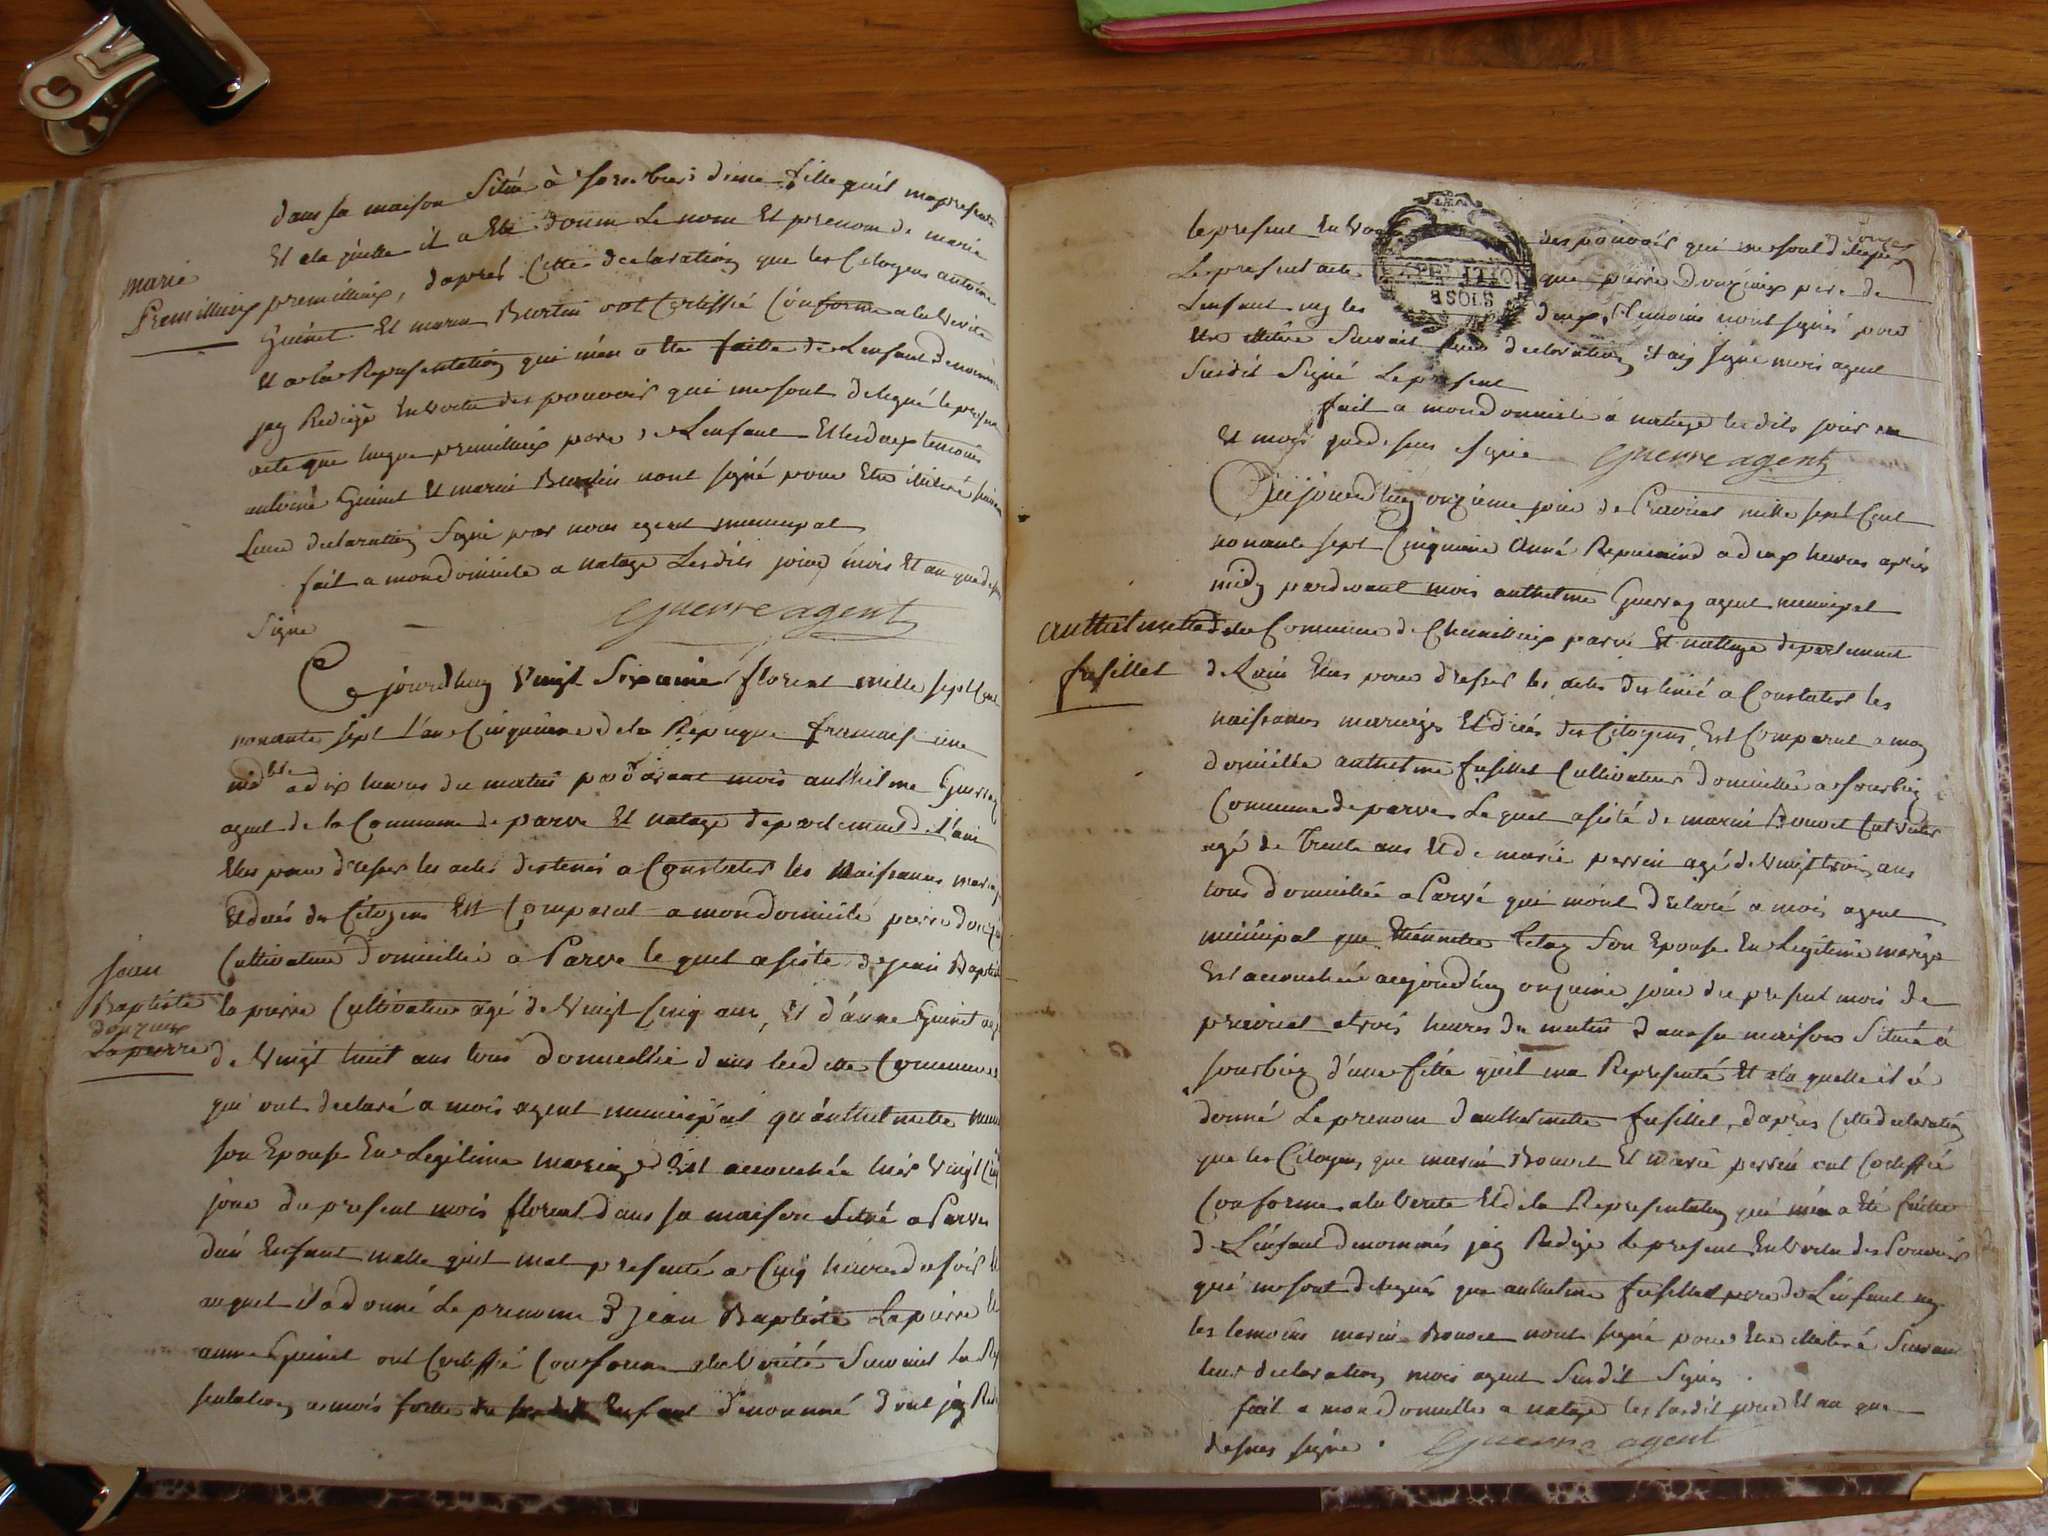 dans sa maison Situé à sorsbier d'une fille quil mapresenté
Et ala quelle il a Eté donné Le nom Et prenom de marie
marie
Premillieux
premillieux, daprès Cette declaration que les Citoyens antoine
Guinet Et marin Burtin ont Certiffié Conforme a la Verité
Et a la Representation qui m'en a Eté faitte de Lenfant denommé
jay Redigé En Vertu des pouvoirs qui me sont delegué le present
acte que hugue premillieux pere de Lenfant Et les deux temoins
antoine Guinet Et marin Burtin nont signé pour Etre illitéré suivant
Leur declaration Signé par nous agent municipal
fait a mon domicile a natage Lesdits jour mois Et an que dessus
Signé
Guerre agent
Ce jourdhuy Vingt Sixieme floreal mille sept Cent
nonante sept l'an Cinquieme de la Repuque francaise une
indble a dix heures du matin par davant mois anthelme Guerrey
agent de la Commune de parve Et natage departement de l'ain
Elus pour dresser les actes destinés a Constater les Naissances mariages
Et décés des Citoyens Est Comparut a mon domicile pierre
Cultivateur Domicillié a Parve le quel asisté de Jean Baptiste
Jean
Baptiste
douzieux
Lapierre
la pierre Cultivateur agé de Vingt Cinq ans, Et d'anne Guinet agé
de Vingt huit ans tous domicillié dans ledette Commune
qui ont declaré a mois agent municipal qu'anthelmette
son Epouse En Legitime mariage Est accouchée hiér Vingt Cinq
jour du present mois floreal dans sa maison Setué a Parve
d'un Enfant malle quil mat presenté a Cinq heures du soir
auquel il a donné Le prenom d Jean Baptiste Lapierre Et
anne Guinet ont Certiffié Conforme a la Verité Suivant La Re
sentation a mois faitte du Enfant denommé dont jay Red
le present En Vertu des pouvoirs qui me sont delegués
Le present acte que pierre Douzieux pere de
Lenfant ny les deux temoins nont signés pour
Etre illitéré Suivant leur declaration Et aiy signé mois agent
Susdit Signé Le present
fait a mon domicile a natage lesdits jour an
Et mois que dessus signé Guerre agent
EXPEDITION
8 SOLS
Aujourdhuy onzieme jour de Prairial mille sept Cent
nonante sept Cinquieme Anné Repuxiaind a deux heures après
midy pardevant mois anthelme Guerrey agent municipal
Anthelmette
fusillet
de la Commune de Chemillieux parve Et nattage departement
de Lain Elus pour dresser les actes destiné a Constater les
naissances mariages Et décés des Citoyens, Est Comparut a moy
domicille anthelme fusillet Cultivateur domicillié a soursbiey
Commune de parve Le quel asisté de marin Bonvet Cultivateur
agé de Trente ans Et de marie perrin agé de Vingt trois ans
tous domicillié a Parvé qui m'ont declaré a mois agent
municipal que Son Epouse En Legitime mariage
Est accouchée aujourdhuy onzieme jour du present mois de
prairial a trois heures du matin dans sa maison Située à
soursbiey d'une fille quil ma Representé Et a la quelle il a
donné Le prenom d'anthelmette fusillet, daprès Cette declaration
que les Citoyens que marin Bonvet Et marie perrin ont Certiffié
Conforme a la Verité Et de la Representation qui m'en a Eté faitte
de Lénfant denommés jay Redigé le present En Vertu des Pouvoirs
qui me sont delegués que anthelme fusillet pere de Lénfant ny
les temoins marin Bonvet nont signé pour Etre illitéré Suivant
leur declaration mois agent Susdit Signé
fait a mon domicille a natage les susdit jour Et an que
dessus signé. Guerre agent